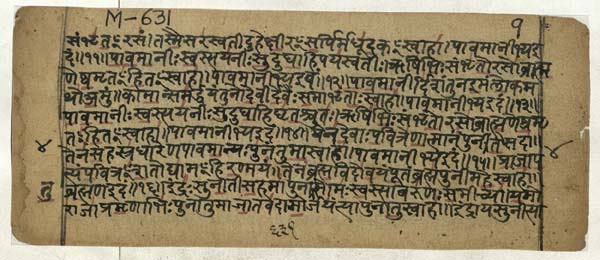 M-631
१
संभृतꣳरसं। तस्मै सरस्वती दुहे क्षीरꣳसर्पिर्मधूदकꣳस्वाहा। पावमानीभ्य इ
दं॥११॥ पावमानीः स्वस्त्ययनीः सुदुघा हि पयस्वतीः। ऋषिभिः संभृतो रसो ब्राह्म
णेष्वमृतꣳहितꣳस्वाहा। पावमानीभ्य इदं॥१२॥ पावमानीर्दिशंतु न इमं लोकम
थो अमुं। कामान्समर्द्धयंतु नो देवीर्देवैः समाभृताः स्वाहा। पावमानीभ्य इदं॥१३॥
पावमानीः स्वस्त्ययनीः सुदुघा हि घृतश्चुतः। ऋषिभिः संभृतो रसो ब्राह्मणेष्वमृ
तꣳहितꣳस्वाहा। पावमानीभ्य इदं॥१४॥ येन देवाः पवित्रेणात्मानं पुनते सदा।
तेन सहस्रधारेण पावमान्यः पुनंतु मा स्वाहा। पावमानीभ्य इदं॥१५॥ प्राजाप
त्यं पवित्रꣳशतोद्यामꣳहिरण्मयं। तेन ब्रह्मविदो वयं पूतं ब्रह्म पुनीमहे स्वाहा।
ब्रह्मण इदं॥१६॥ इंद्रः सुनीती सह मा पुनातु सोमः स्वस्त्या वरुणः समीच्या यमो
राजा प्रमृणाभिः पुनातु मा जातवेदा मोर्जयंत्या पुनातु स्वाहा। इंद्राय सुनीत्या
६३१